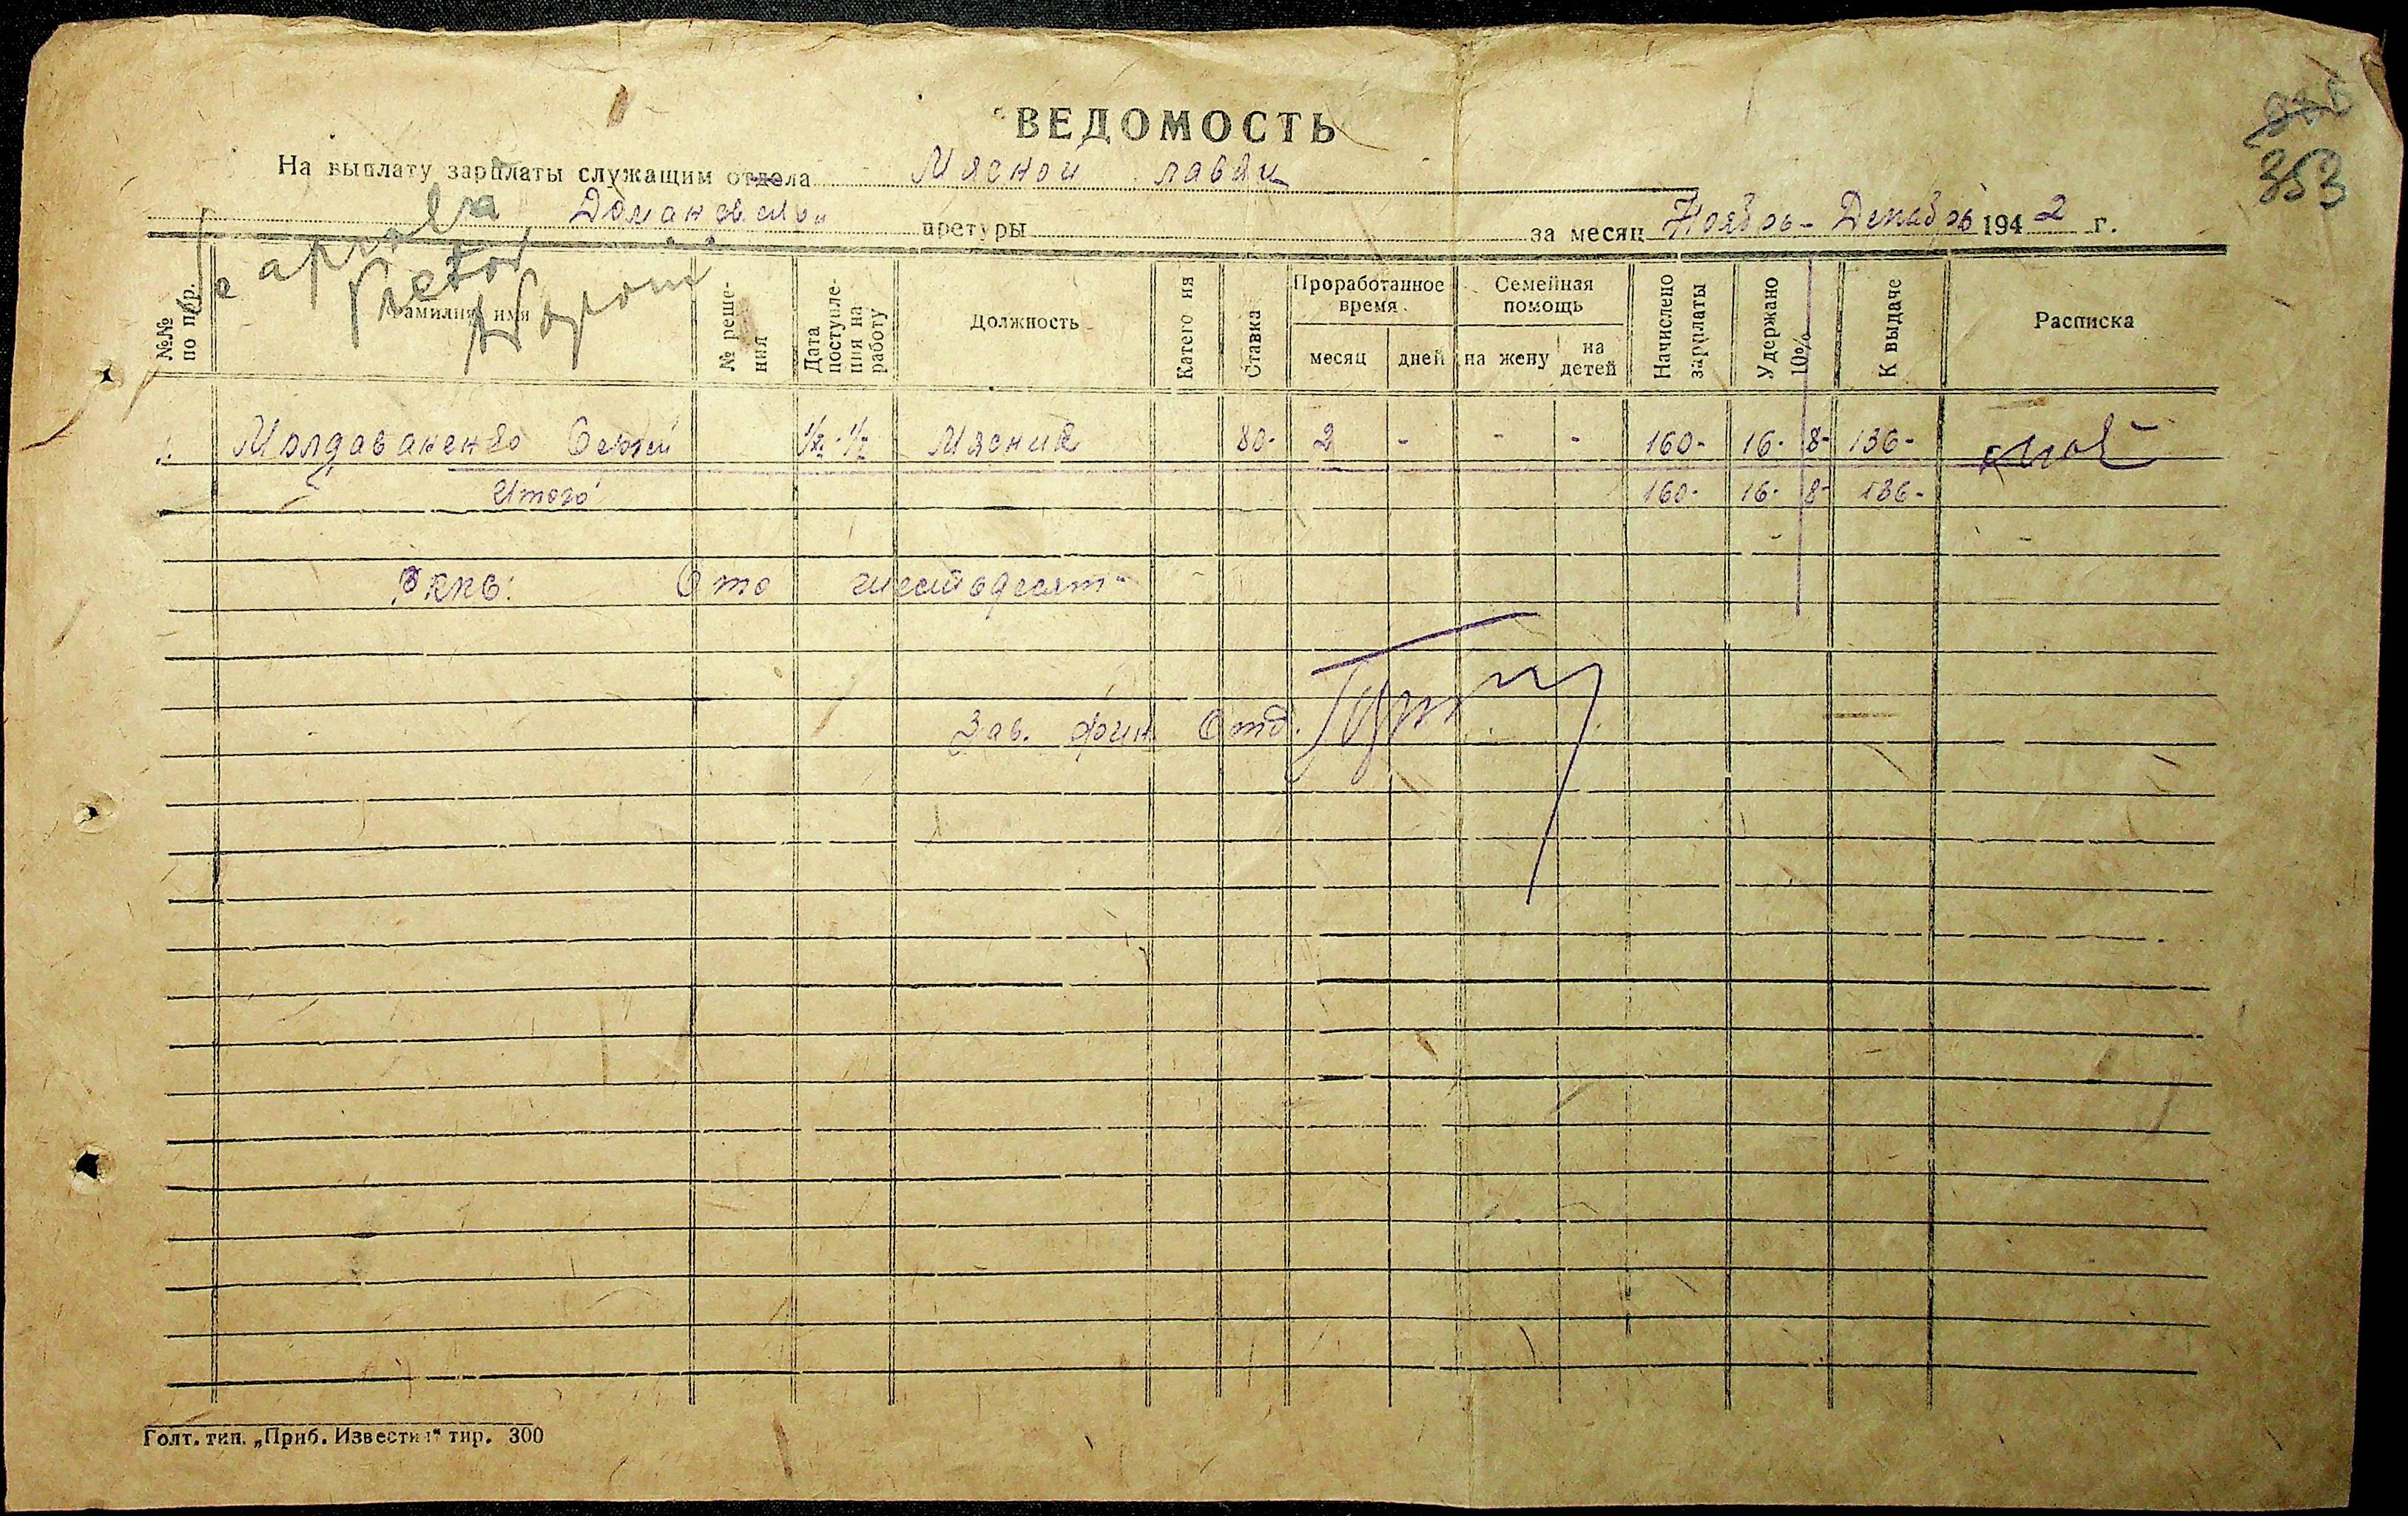 353
ВЕДОМОСТЬ
На выплату зарплаты служащим отдела Мясной лавки
Домановской претуры за месяц Ноябрь - Декабрь 1942 г.
Se aproba
Pretor
№№ по пор.
Фамилия, имя
№ решения
Дата поступления на работу
Должность
Катего ия
Ставка
Проработанное время
месяц
дней
Семейная помощь
на жену
на детей
Начислено зарплаты
Удержано 10%
К выдаче
Расписка
1. Молдаваненко Сергей Мясник 80- 2 - - - 160- 16- 8- 136-
Итого 160- 16- 8- 136-
РККС: Сто шестьдесят-
Зав. фин. Отд.
Голт. тип. „Приб. Известия" тир. 300